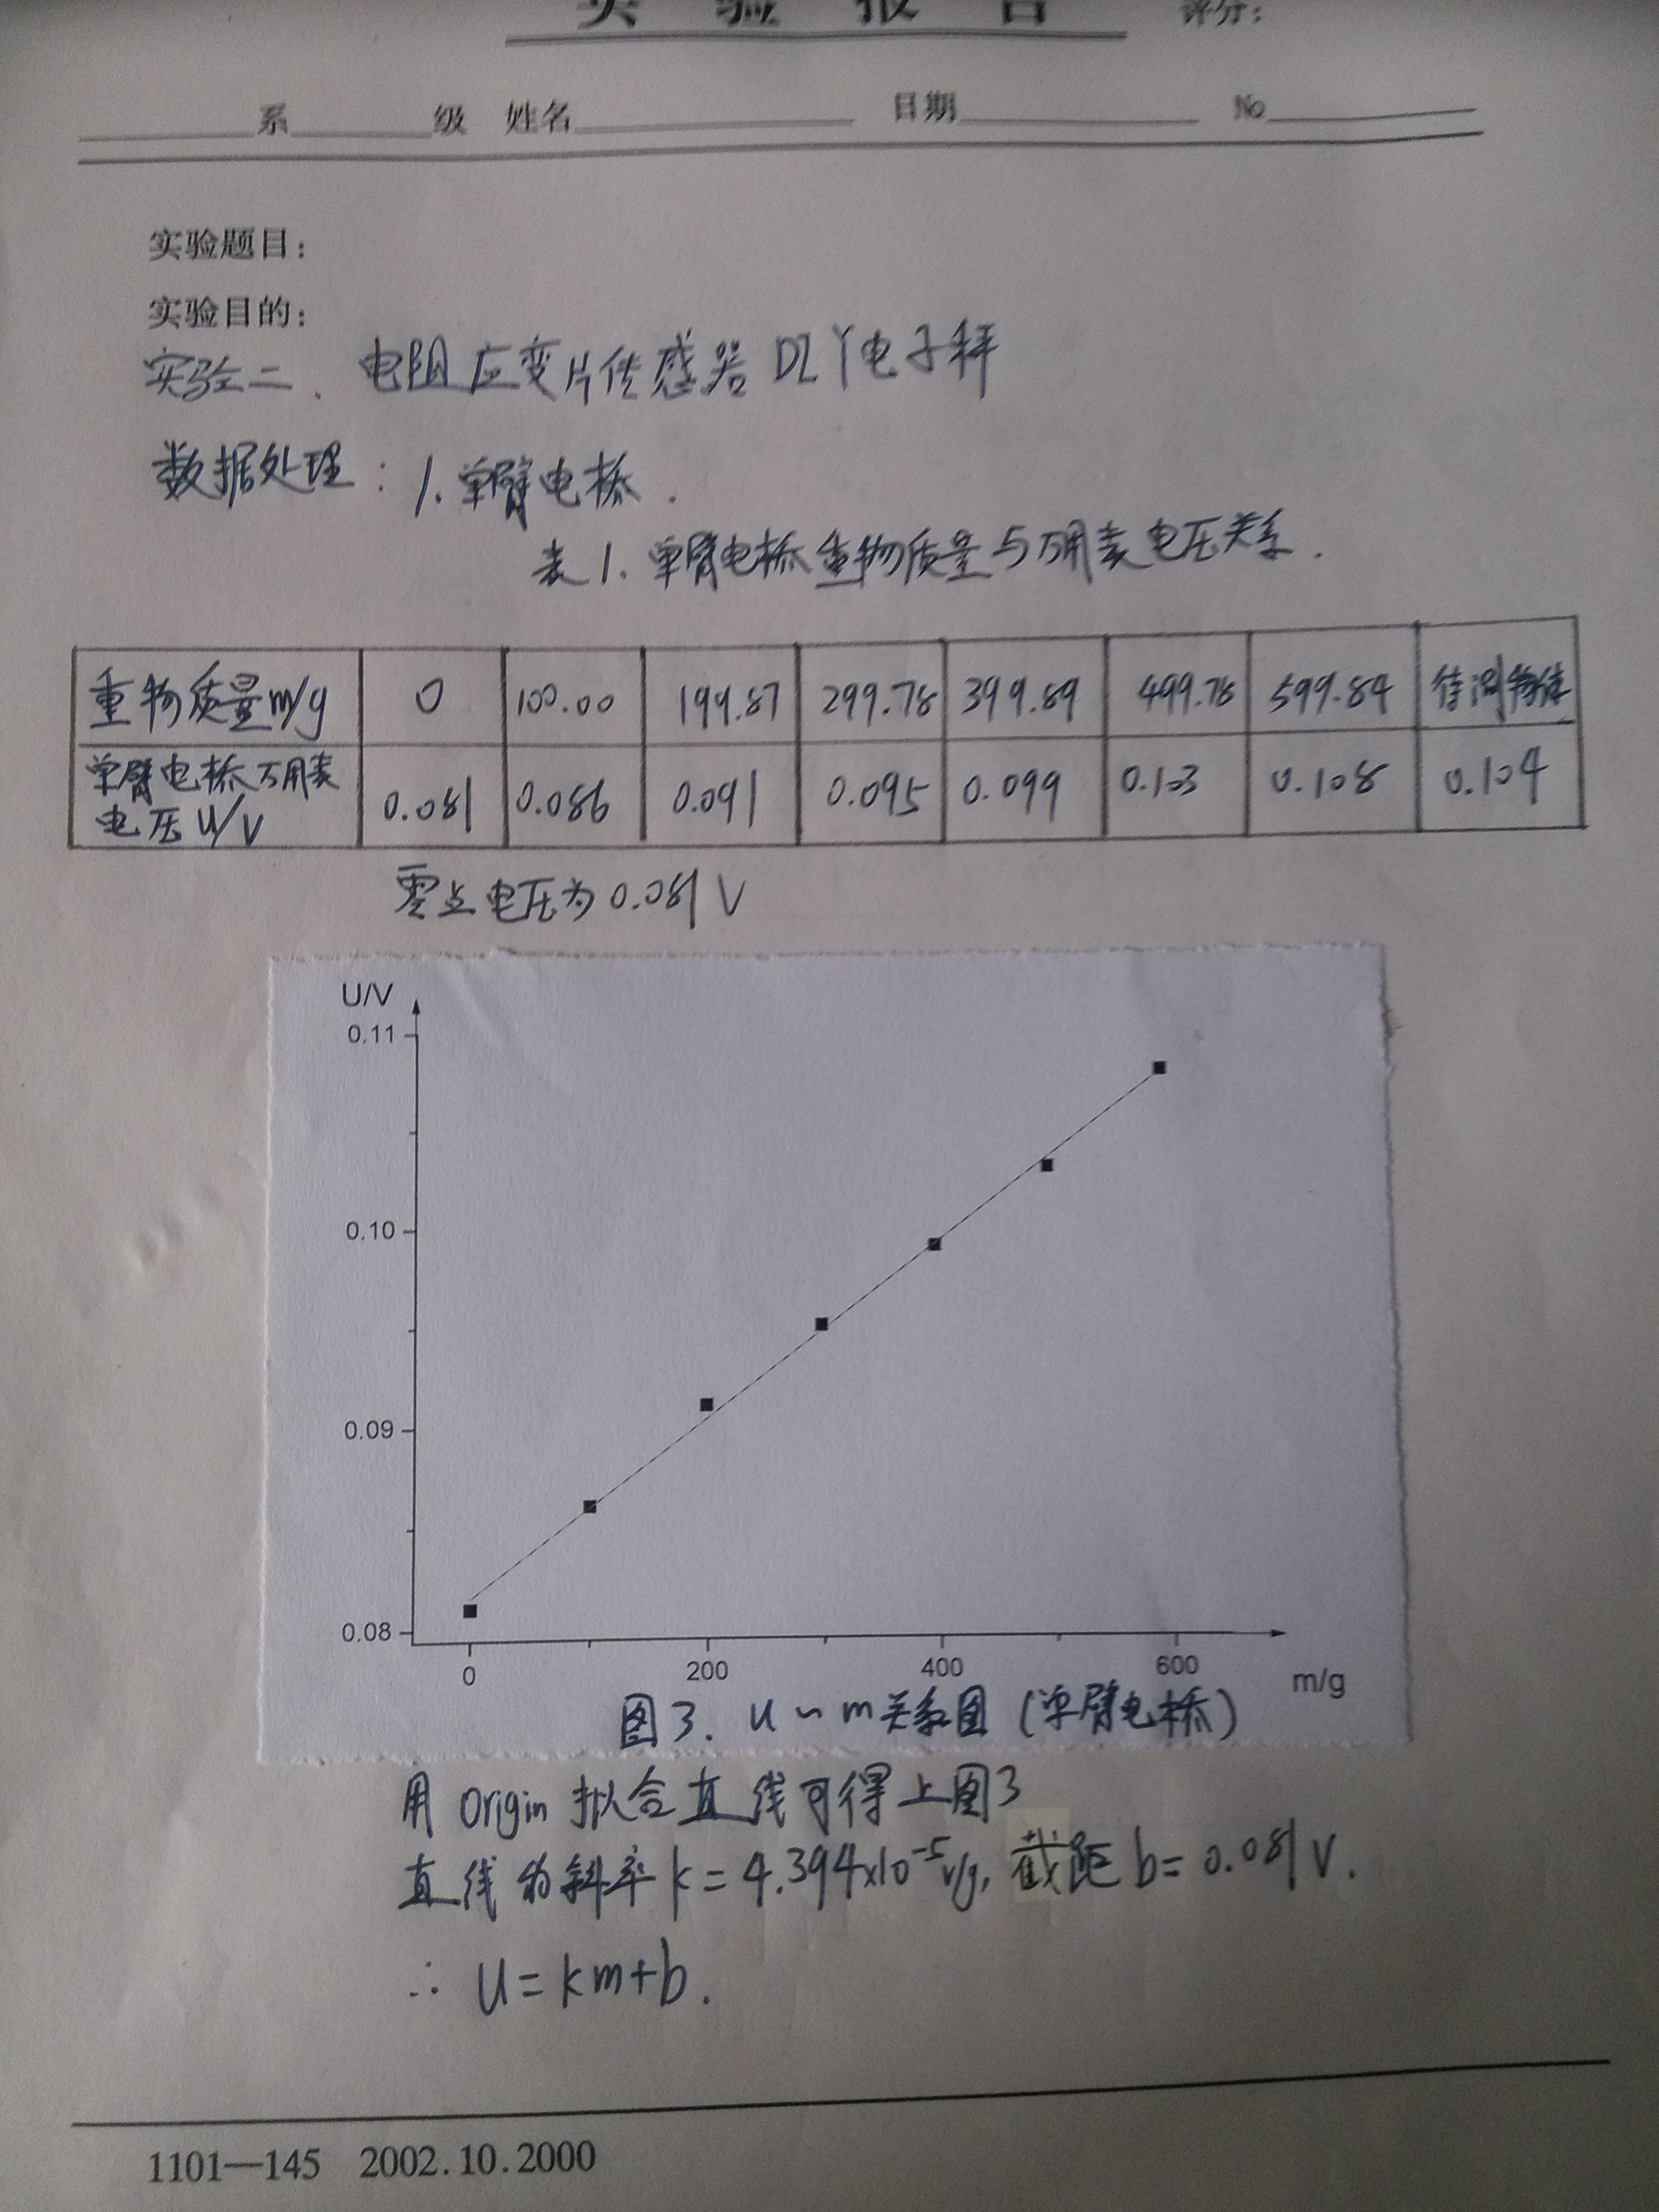 实 验 报 告 评分:
系 级 姓名 日期 No
实验题目:
实验目的:
实验二、电阻应变片传感器DIY电子秤
数据处理:1.单臂电桥.
表1.单臂电桥重物质量与万用表电压关系.
重物质量m/g 0 100.00 199.87 299.78 399.89 499.78 599.84 待测物体
单臂电桥万用表
电压U/V 0.081 0.086 0.091 0.095 0.099 0.103 0.108 0.104
零点电压为0.081V
U/V
0.11
0.10
0.09
0.08
0 200 400 600 m/g
图3. U~m关系图(单臂电桥)
用Origin拟合直线可得上图3
直线的斜率k=4.394×10⁻⁵V/g, 截距b=0.081V.
∴ U=km+b.
1101—145 2002.10.2000